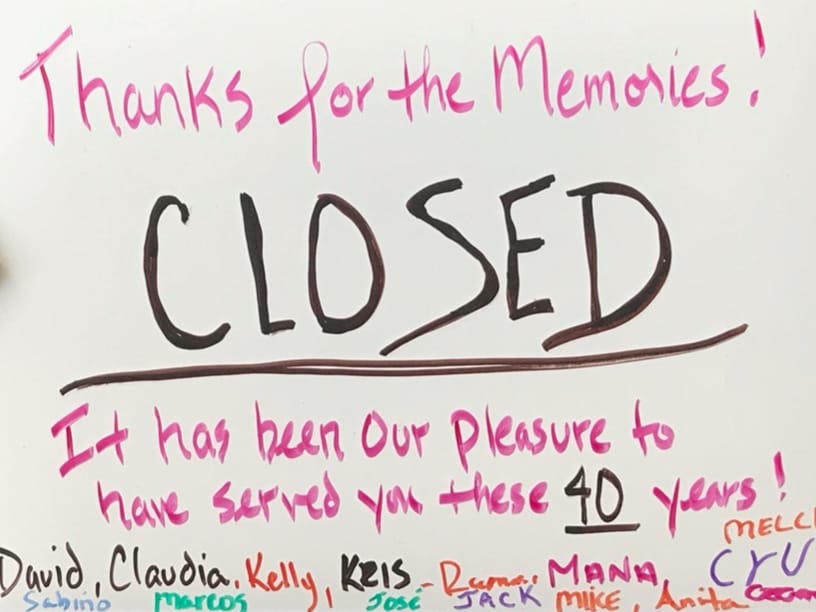 Thanks for the Memories!
CLOSED
It has been our pleasure to
have served you these 40 years!
MELCI
David, Claudia, Kelly, KRIS - MANA, CYU
Sabino Marcos José JACK MIKE, Anita